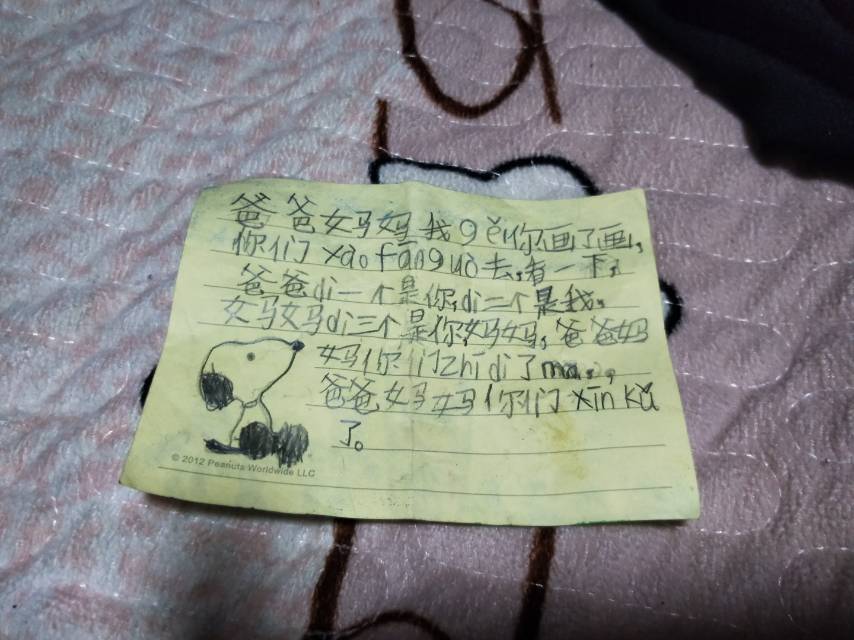 爸爸妈妈我gěi你画了画,
你们xǎofāngguò去,看一下,
爸爸di一个是你,di二个是我,
妈妈di三个是你妈妈,爸爸妈
妈你们zhīdi了ma,,
爸爸妈妈你们xīnkǔ
了。
© 2012 Peanuts Worldwide LLC